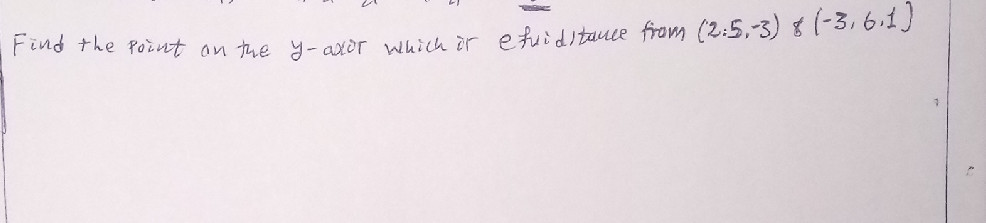 Find the point on the y-axis which is equidistance from (2.5,-3) & (-3, 6.1)